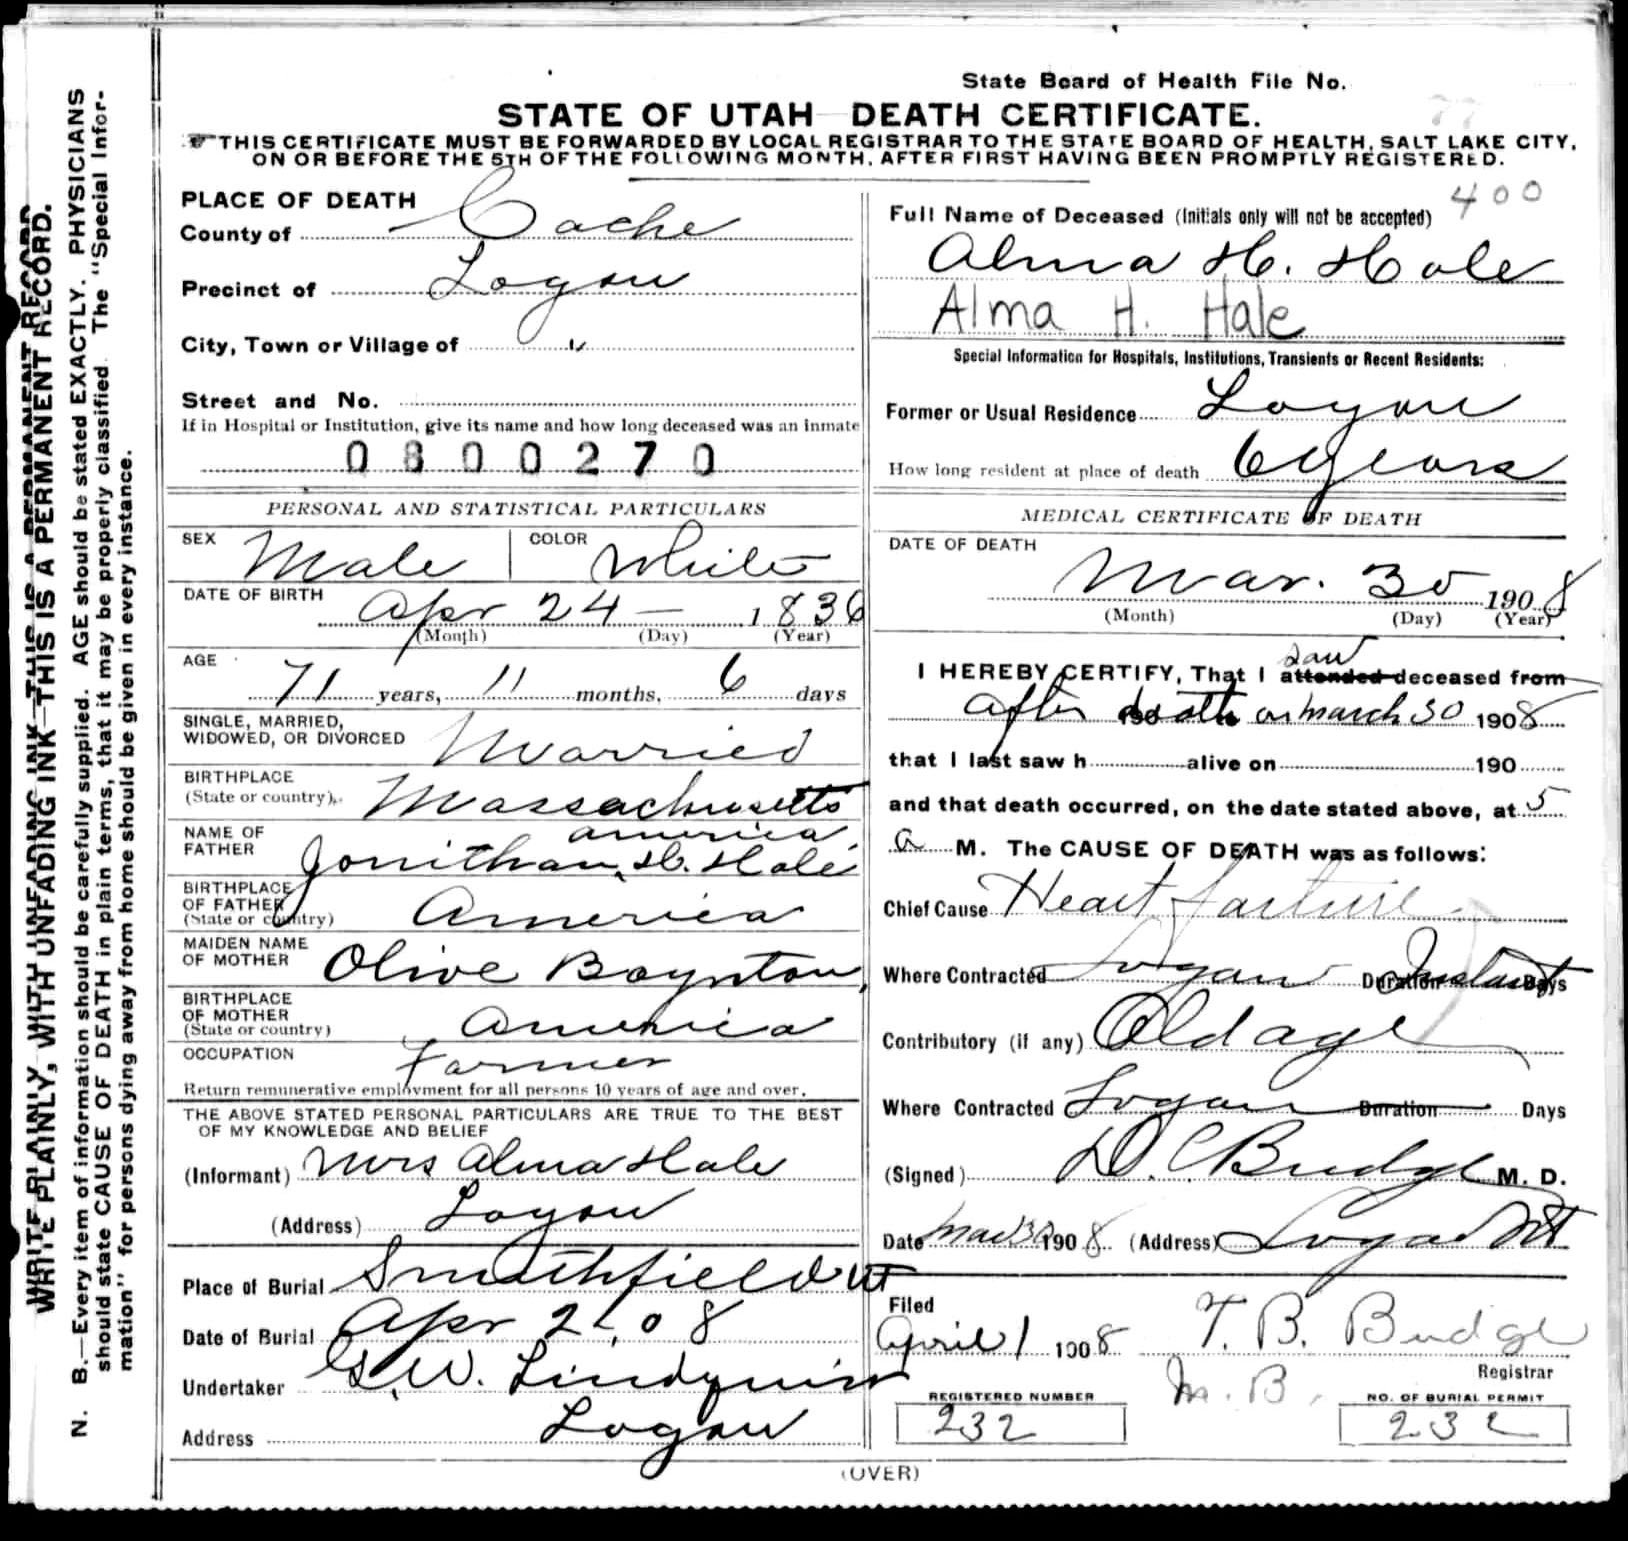 WRITE PLAINLY, WITH UNFADING INK—THIS IS A PERMANENT RECORD.
N. B.—Every item of information should be carefully supplied. AGE should be stated EXACTLY. PHYSICIANS
should state CAUSE OF DEATH in plain terms, that it may be properly classified. The "Special Infor-
mation" for persons dying away from home should be given in every instance.
State Board of Health File No.
77
STATE OF UTAH DEATH CERTIFICATE.
☞ THIS CERTIFICATE MUST BE FORWARDED BY LOCAL REGISTRAR TO THE STATE BOARD OF HEALTH, SALT LAKE CITY,
ON OR BEFORE THE 5TH OF THE FOLLOWING MONTH, AFTER FIRST HAVING BEEN PROMPTLY REGISTERED.
PLACE OF DEATH
County of Cache
Precinct of Logan
City, Town or Village of "
Street and No.
If in Hospital or Institution, give its name and how long deceased was an inmate
0800270
PERSONAL AND STATISTICAL PARTICULARS
SEX Male COLOR White
DATE OF BIRTH
Apr 24 — 1836
(Month) (Day) (Year)
AGE
71 years, 11 months, 6 days
SINGLE, MARRIED,
WIDOWED, OR DIVORCED Married
BIRTHPLACE
(State or country) Massachusetts
america
NAME OF
FATHER Jonithan H. Hale
BIRTHPLACE
OF FATHER
(State or country) America
MAIDEN NAME
OF MOTHER Olive Boynton
BIRTHPLACE
OF MOTHER
(State or country) America
OCCUPATION Farmer
Return remunerative employment for all persons 10 years of age and over.
THE ABOVE STATED PERSONAL PARTICULARS ARE TRUE TO THE BEST
OF MY KNOWLEDGE AND BELIEF
(Informant) Mrs Alma Hale
(Address) Logan
Place of Burial Smithfield Ut
Date of Burial Apr 2 - 08
Undertaker G. W. Lindquist
Address Logan
400
Full Name of Deceased (Initials only will not be accepted)
Alma H. Hale
Alma H. Hale
Special Information for Hospitals, Institutions, Transients or Recent Residents:
Former or Usual Residence Logan
How long resident at place of death 6 years
MEDICAL CERTIFICATE OF DEATH
DATE OF DEATH
Mar. 30 1908
(Month) (Day) (Year)
saw
I HEREBY CERTIFY, That I attended deceased from
after death on march 30 1908
that I last saw h alive on 190
and that death occurred, on the date stated above, at 5
a M. The CAUSE OF DEATH was as follows:
Chief Cause Heart failure
Where Contracted Logan Duration Instant Days
Contributory (if any) Old age
Where Contracted Logan Duration Days
(Signed) D. C. Budge M. D.
Date Mar 30 1908 (Address) Logan Ut
Filed
April 1 1908 T. B. Budge
Registrar
M. B.
REGISTERED NUMBER
232
NO. OF BURIAL PERMIT
232
(OVER)